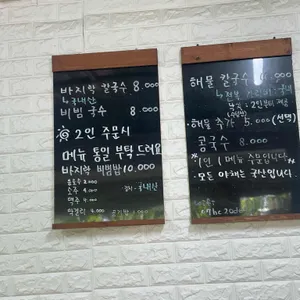 바지락 칼국수 8.000
↳국내산
비빔 국수 8.000
2인 주문시
메뉴 통일 부탁 드려요
바지락 비빔밥 10.000
음료수 2.000
소주 4.000
맥주 4.000
막걸리 4.000
국내산
해물 칼국수
해물 추가 5.000 (선택)
콩국수 8.000
1인 1 메뉴 주문입니다
모든 야채는 국산입니다